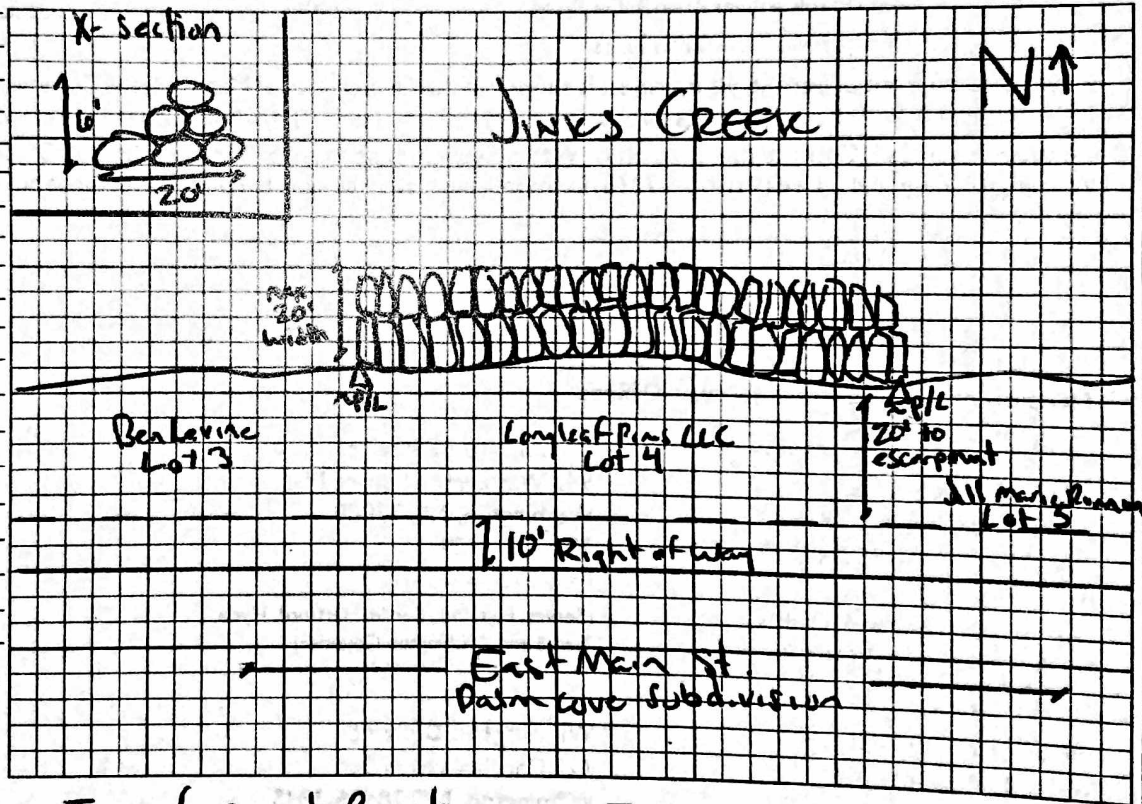 X-section
6'
20'
N
JINKS CREEK
max
20'
width
≈P/L
≈P/L
Ben Levine
Lot 3
Longleaf Pines LLC
Lot 4
20' to
escarpment
Jill Marie
Lot 5
10' Right of Way
East Main St.
Palm cove subdivision